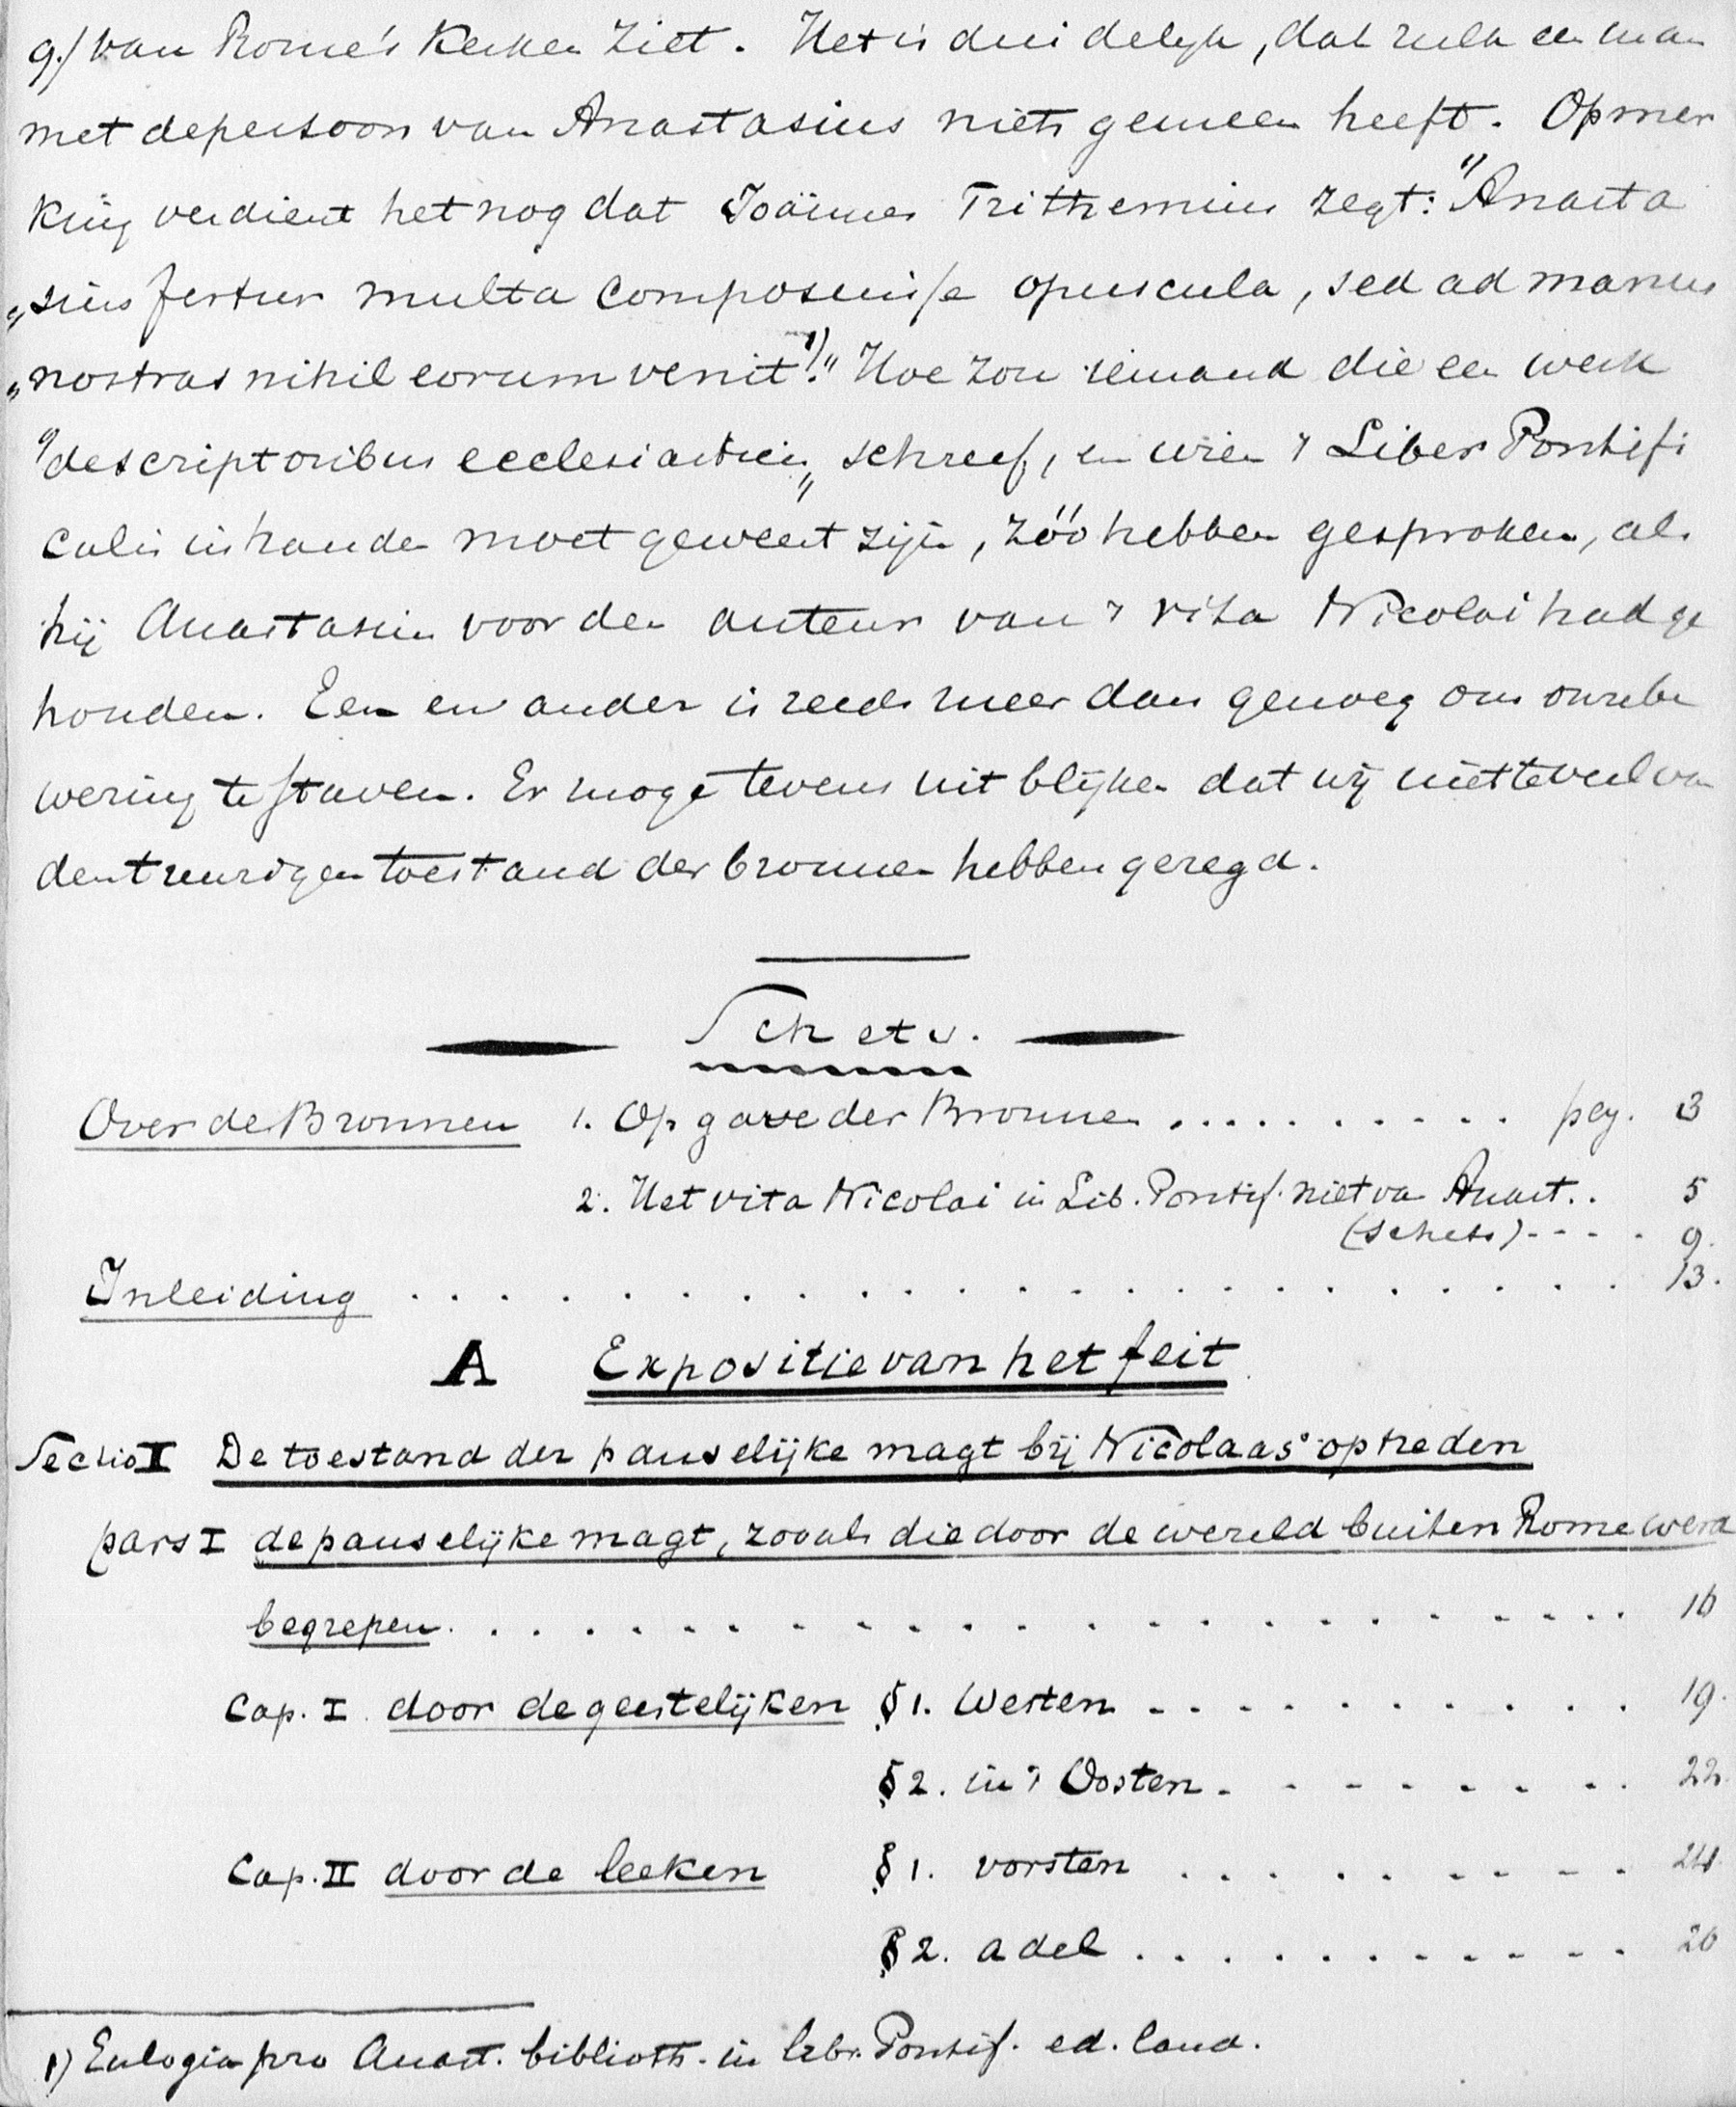 9./ van Rome's Kerken ziet. Het is duidelijk, dat zulk een man
met de persoon van Anastasius niets gemeen heeft. Opmer
king verdient het nog dat Joännes Trithemius zegt: "Anasta
"sius fertur multa composuisse opuscula, sed ad manus
"nostras nihil eorum venit 1)." Hoe zou iemand die een werk
"de scriptoribus ecclesiasticis" schreef, en wien 't Liber Pontifi
calis in handen moet geweest zijn, zóó hebben gesproken, als
hij Anastasius voor den auteur van 't vita Nicolai had ge
houden. Een en ander is reeds meer dan genoeg om onze be
wering te staven. Er moge tevens uit blijken dat wij niet te veel van
den treurigen toestand der bronnen hebben gezegd.
Schets.
Over de Bronnen 1. Opgave der Bronnen .......... pag. 3
2. Het vita Nicolai in Lib. Pontif. niet van Anast. . 5
(schets) - - - - 9.
Inleiding . . . . . . . . . . . . . . . . . . . . 13.
A Expositie van het feit
Sectio I De toestand der pauselijke magt bij Nicolaas' optreden
pars I de pauselijke magt, zooals die door de wereld buiten Rome werd
begrepen . . . . . . . . . . . . . . . . . . . . 16
Cap. I. door de geestelijken § 1. Westen - - - - - - - - - - 19.
§ 2. in 't Oosten - - - - - - - - - 22.
Cap. II door de leeken § 1. vorsten . . . . . . . . . . 24
§ 2. adel . . . . . . . . . . . 26
1) Eulogia pro Anast. biblioth. in libr. Pontif. ed. laud.